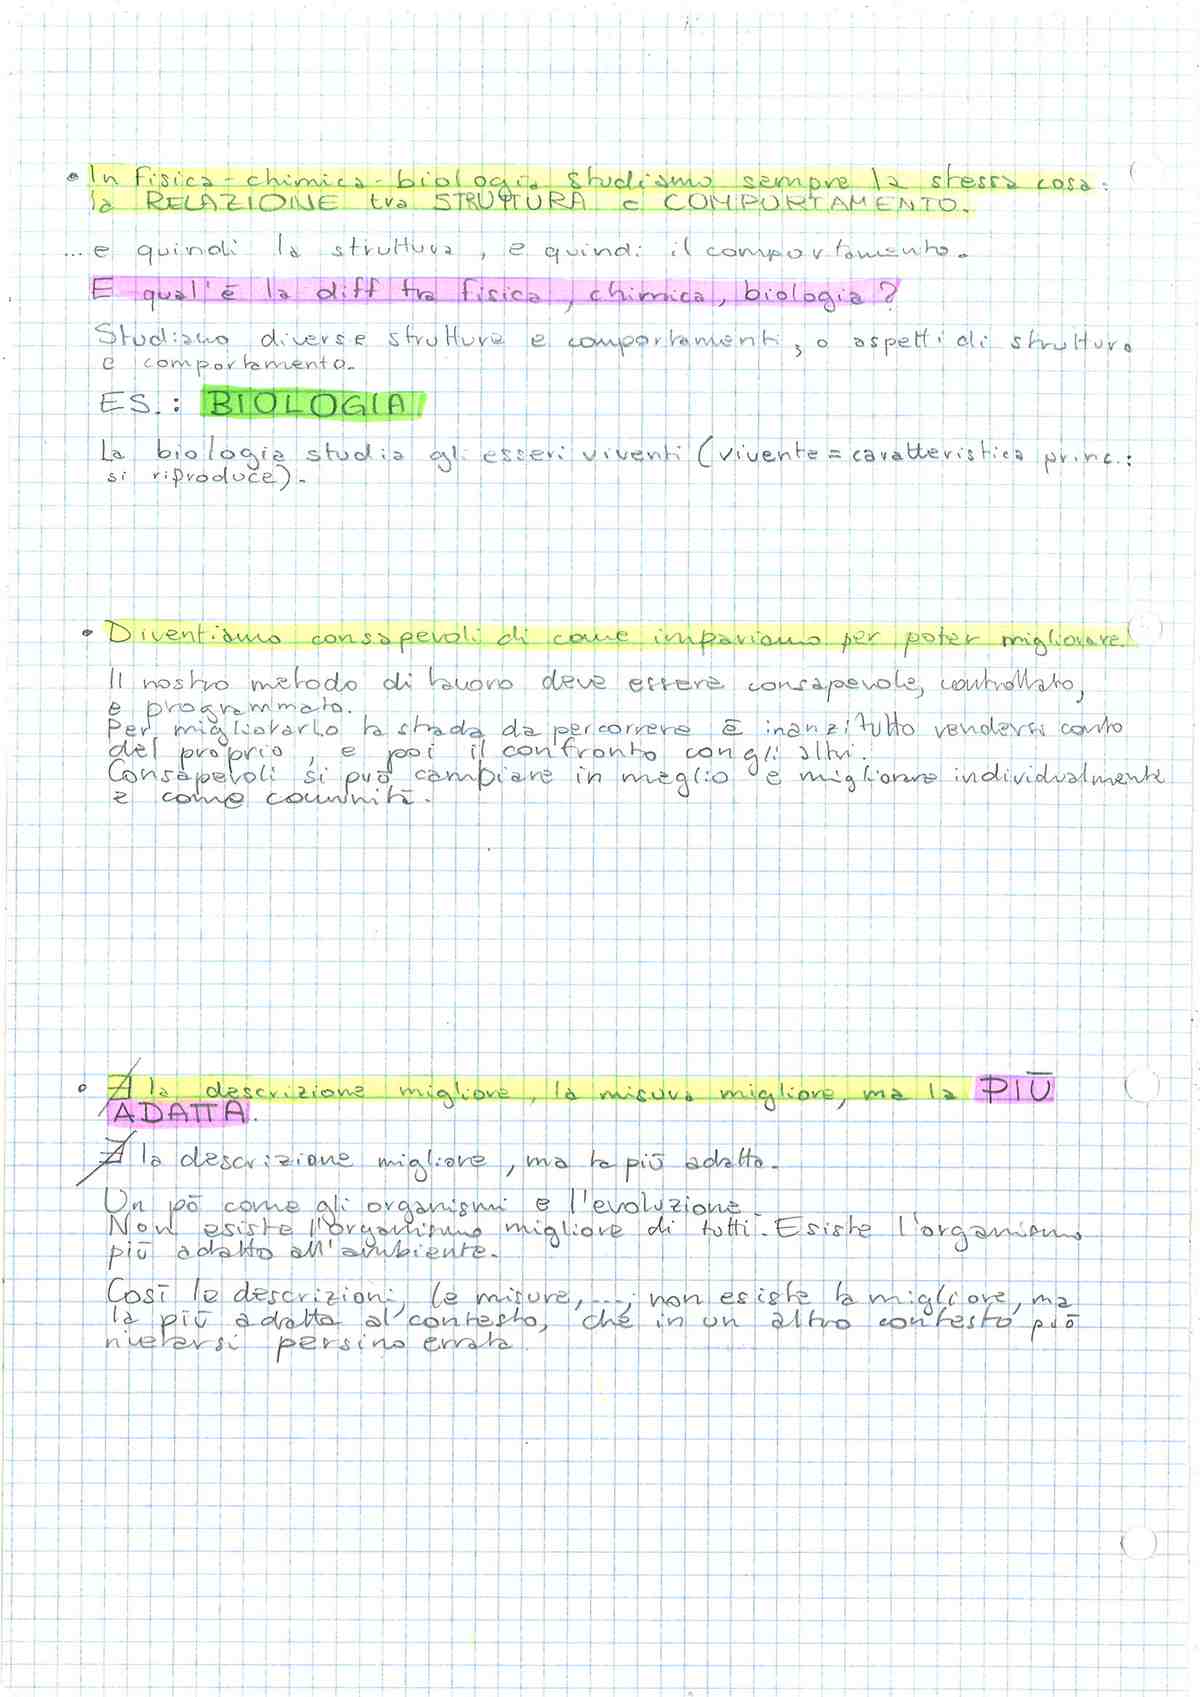 • In fisica-chimica-biologia studiamo sempre la stessa cosa:
la RELAZIONE tra STRUTTURA e COMPORTAMENTO.
...e quindi la struttura, e quindi il comportamento.
E qual'è la diff tra fisica, chimica, biologia?
Studiano diverse strutture e comportamenti, o aspetti di struttura
e comportamento.
ES.: BIOLOGIA
La biologia studia gli esseri viventi (vivente = caratteristica princ.:
si riproduce).
• Diventiamo consapevoli di come impariamo per poter migliorare.
Il nostro metodo di lavoro deve essere consapevole, controllato,
e programmato.
Per migliorarlo la strada da percorrere è inanzitutto rendersi conto
del proprio, e poi il confronto con gli altri.
Consapevoli si può cambiare in meglio e migliorare individualmente
e come comunità.
• ∄ la descrizione migliore, la misura migliore, ma la PIÙ
ADATTA.
∄ la descrizione migliore, ma la più adatta.
Un pò come gli organismi e l'evoluzione.
Non esiste l'organismo migliore di tutti. Esiste l'organismo
più adatto all'ambiente.
Così le descrizioni, le misure, ...; non esiste la migliore, ma
la più adatta al contesto, che in un altro contesto può
rivelarsi persino errata.